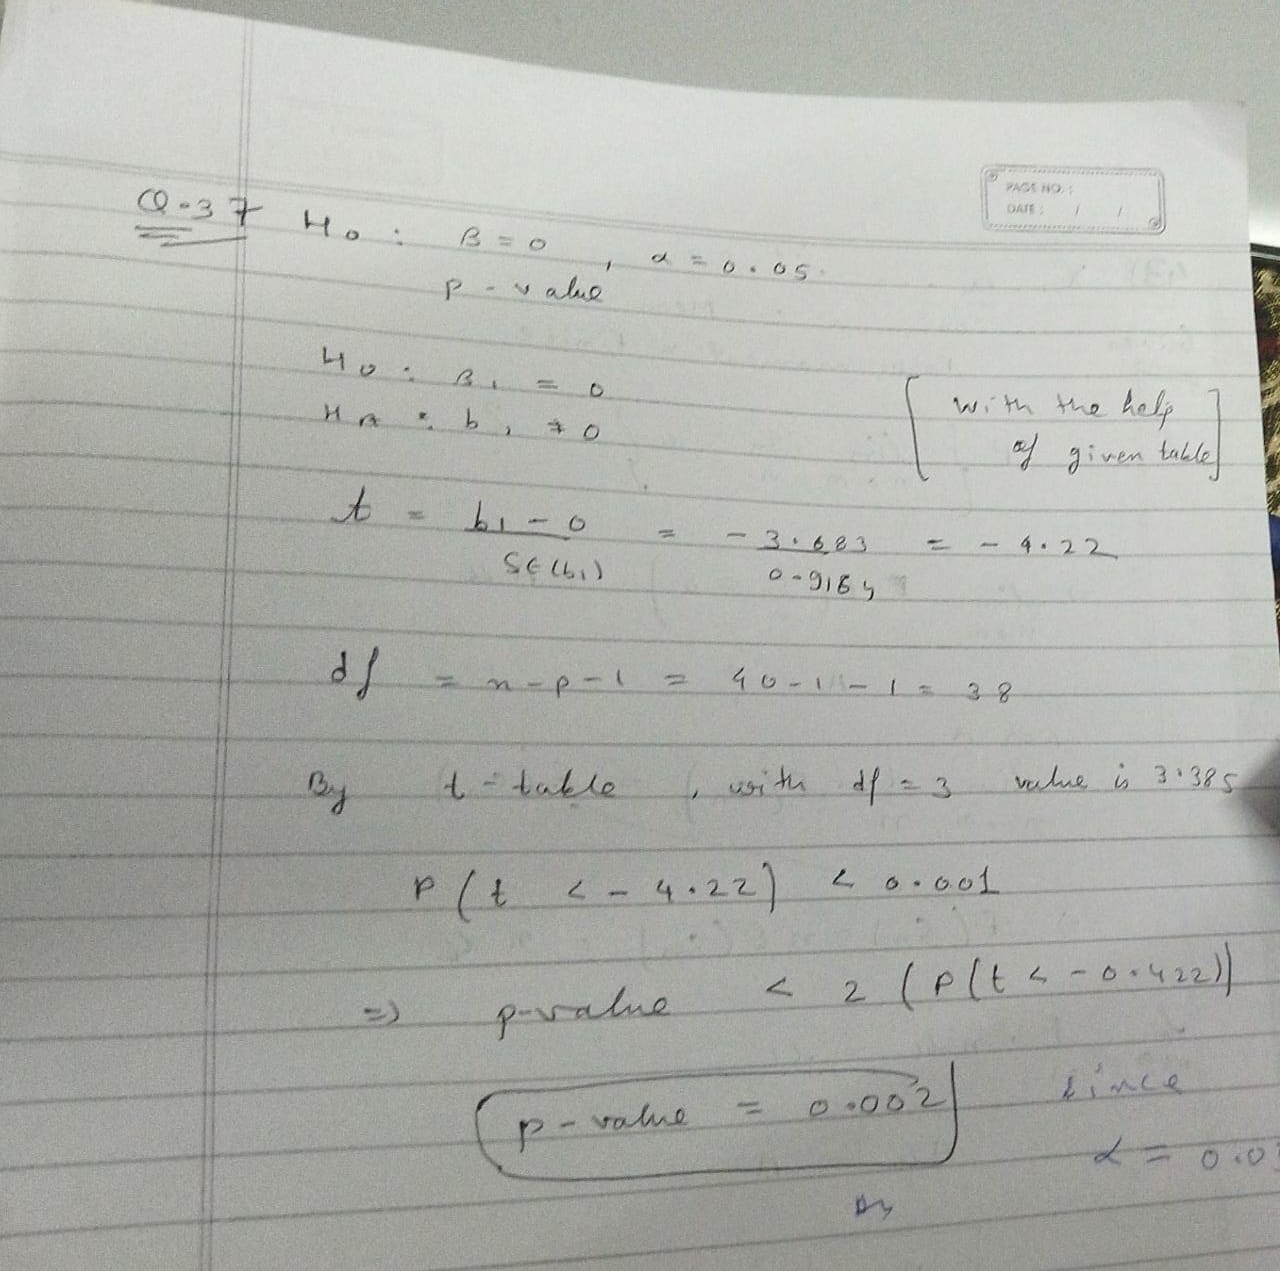 PAGE NO. :
DATE : / /
Q.37 H0 : β = 0 , α = 0.05
p-value
H0 : β1 = 0
HA : b1 ≠ 0
[with the help
of given table]
t = b1 - 0 / SE(b1) = -3.683 / 0.9164 = -4.22
df = n-p-1 = 40-1-1 = 38
By t-table , with df = 3 value is 3.385
P(t < -4.22) < 0.001
=> p-value < 2 (P(t < -0.422))
p-value = 0.002 since
α = 0.0